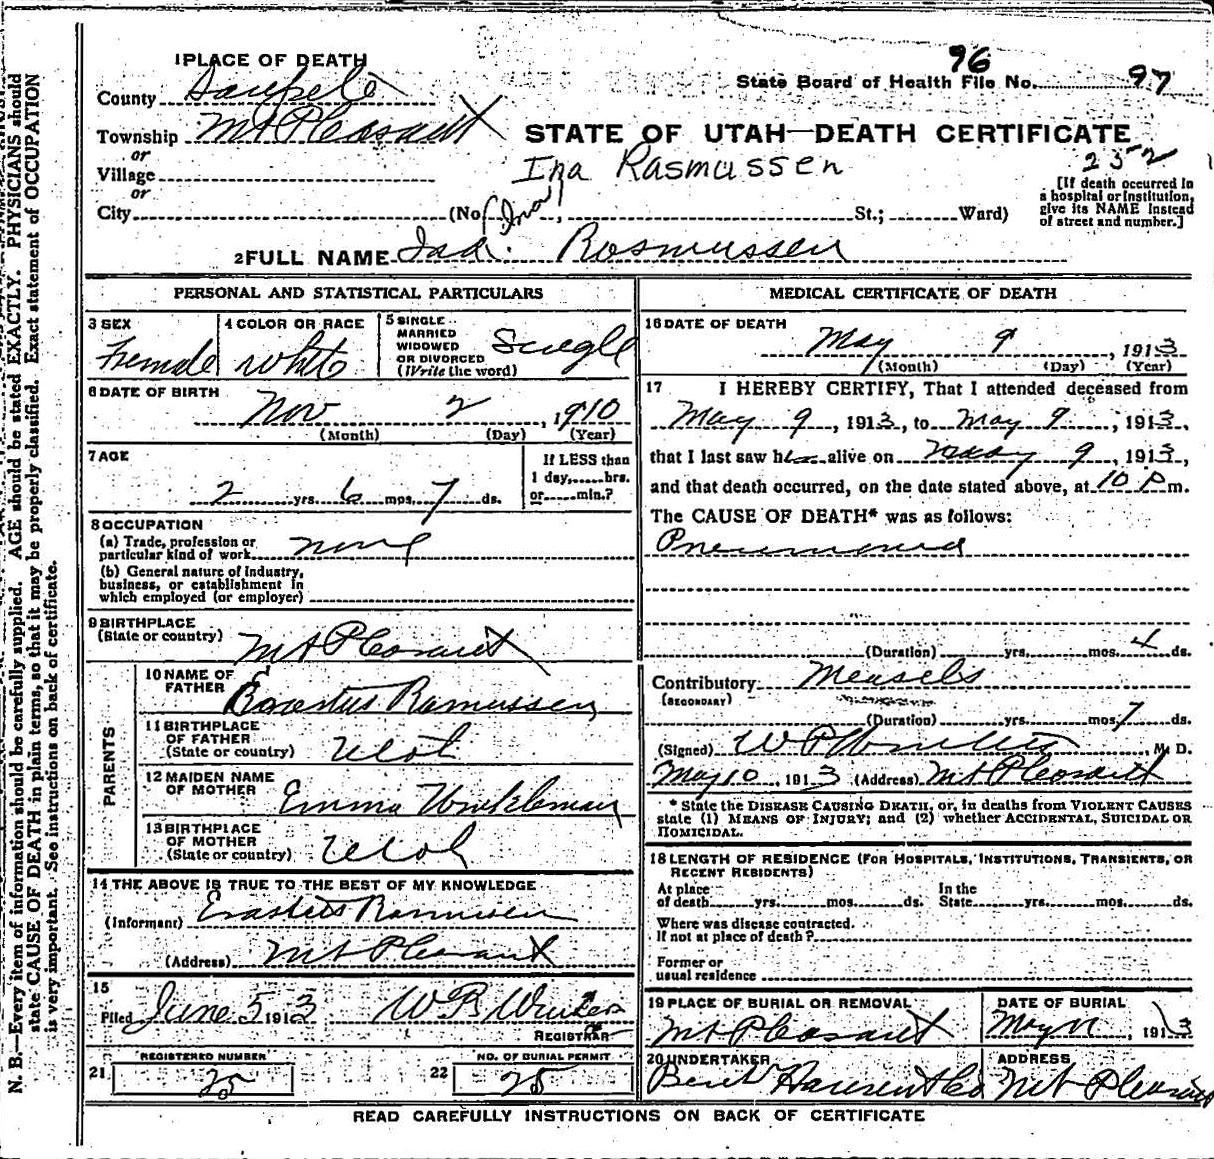 1 PLACE OF DEATH
96
State Board of Health File No. 97
County Sanpete
Township Mt Pleasant
STATE OF UTAH—DEATH CERTIFICATE
or
Village
Ina Rasmussen
252
or
[If death occurred in a hospital or institution, give its NAME instead of street and number.]
City (No. , St.; Ward)
(Ina)
2 FULL NAME Rasmussen
PERSONAL AND STATISTICAL PARTICULARS
3 SEX Female
4 COLOR OR RACE White
5 SINGLE MARRIED WIDOWED OR DIVORCED (Write the word) Single
6 DATE OF BIRTH
Nov 2, 1910
(Month) (Day) (Year)
7 AGE
2 yrs. 6 mos. 7 ds.
If LESS than 1 day,......hrs. or......min.?
8 OCCUPATION
(a) Trade, profession or particular kind of work none
(b) General nature of industry, business, or establishment in which employed (or employer)
9 BIRTHPLACE
(State or country) Mt Pleasant
PARENTS
10 NAME OF FATHER Erastus Rasmussen
11 BIRTHPLACE OF FATHER (State or country) Utah
12 MAIDEN NAME OF MOTHER Emma Winkleman
13 BIRTHPLACE OF MOTHER (State or country) Utah
14 THE ABOVE IS TRUE TO THE BEST OF MY KNOWLEDGE
(Informant) Erastus Rasmussen
(Address) Mt Pleasant
15
Filed June 5 1913 W
REGISTRAR
REGISTERED NUMBER
21 25
NO. OF BURIAL PERMIT
22 25
MEDICAL CERTIFICATE OF DEATH
16 DATE OF DEATH
May 9, 1913
(Month) (Day) (Year)
17 I HEREBY CERTIFY, That I attended deceased from
May 9, 1913, to May 9, 1913,
that I last saw her alive on May 9, 1913,
and that death occurred, on the date stated above, at 10 P m.
The CAUSE OF DEATH* was as follows:
Pneumonia
(Duration) yrs. mos. 4 ds.
Contributory Measels
(SECONDARY)
(Duration) yrs. mos. 7 ds.
(Signed) W P , M. D.
May 10, 1913 (Address) Mt Pleasant
* State the DISEASE CAUSING DEATH, or, in deaths from VIOLENT CAUSES
state (1) MEANS OF INJURY; and (2) whether ACCIDENTAL, SUICIDAL OR
HOMICIDAL.
18 LENGTH OF RESIDENCE (FOR HOSPITALS, INSTITUTIONS, TRANSIENTS, OR
RECENT RESIDENTS)
At place of death yrs. mos. ds. In the State yrs. mos. ds.
Where was disease contracted.
If not at place of death?
Former or
usual residence
19 PLACE OF BURIAL OR REMOVAL Mt Pleasant
DATE OF BURIAL May 11, 1913
20 UNDERTAKER Hansen & Co
ADDRESS Mt Pleasant
READ CAREFULLY INSTRUCTIONS ON BACK OF CERTIFICATE
N. B.—Every item of information should be carefully supplied. AGE should be stated EXACTLY. PHYSICIANS should
state CAUSE OF DEATH in plain terms, so that it may be properly classified. Exact statement of OCCUPATION
is very important. See instructions on back of certificate.